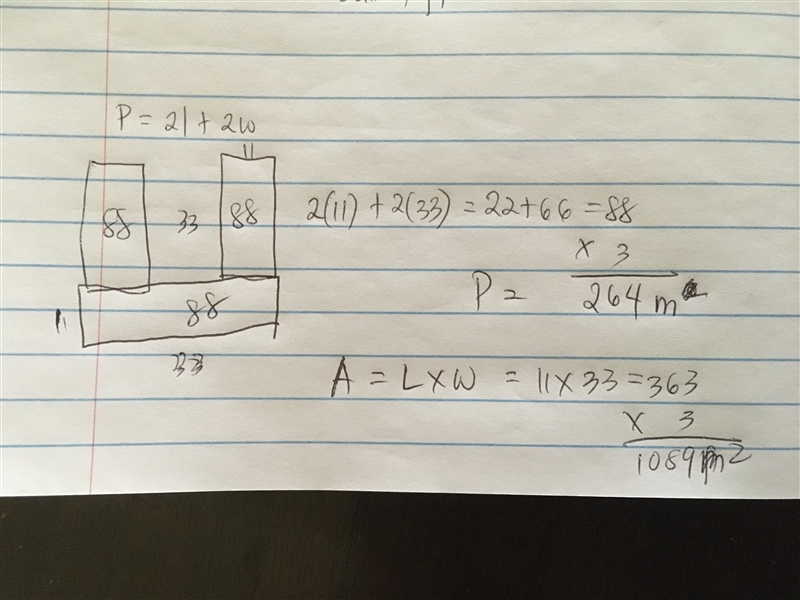 P = 2l + 2w
11
88 33 88
2(11) + 2(33) = 22 + 66 = 88
x 3
P = 264 m
88
11
33
A = L x W = 11 x 33 = 363
x 3
1089 m²